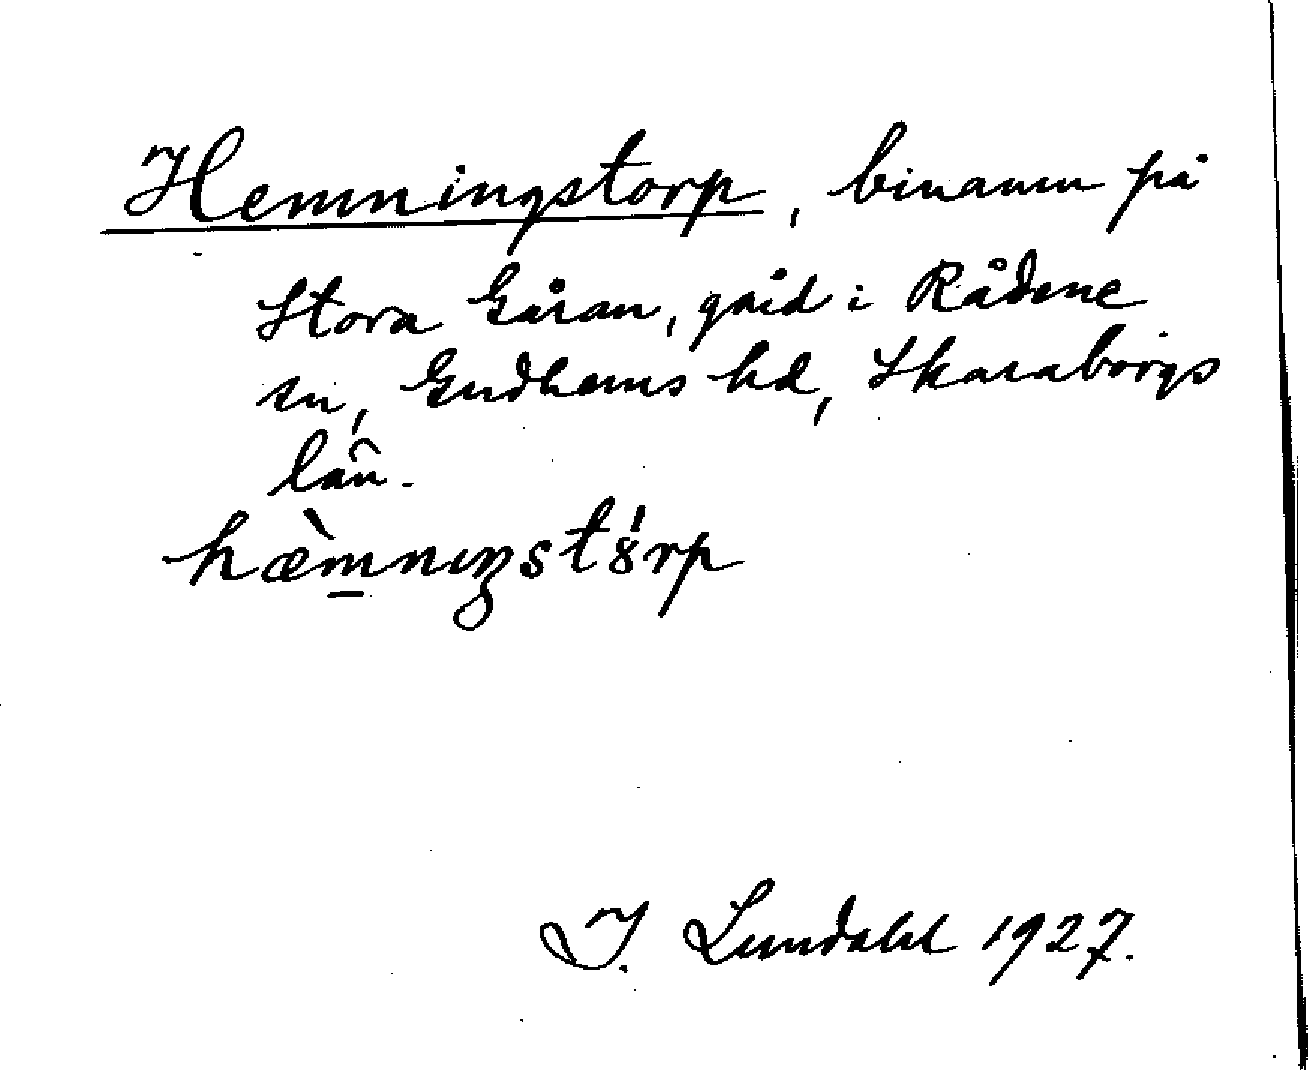 Hemningstorp, binamn på
Stora Gåran, gård i Rådene
sn, Gudhems hd, Skaraborgs
län.
hæ̀m̲nıŋstȣ́rp
I. Lundahl 1927.